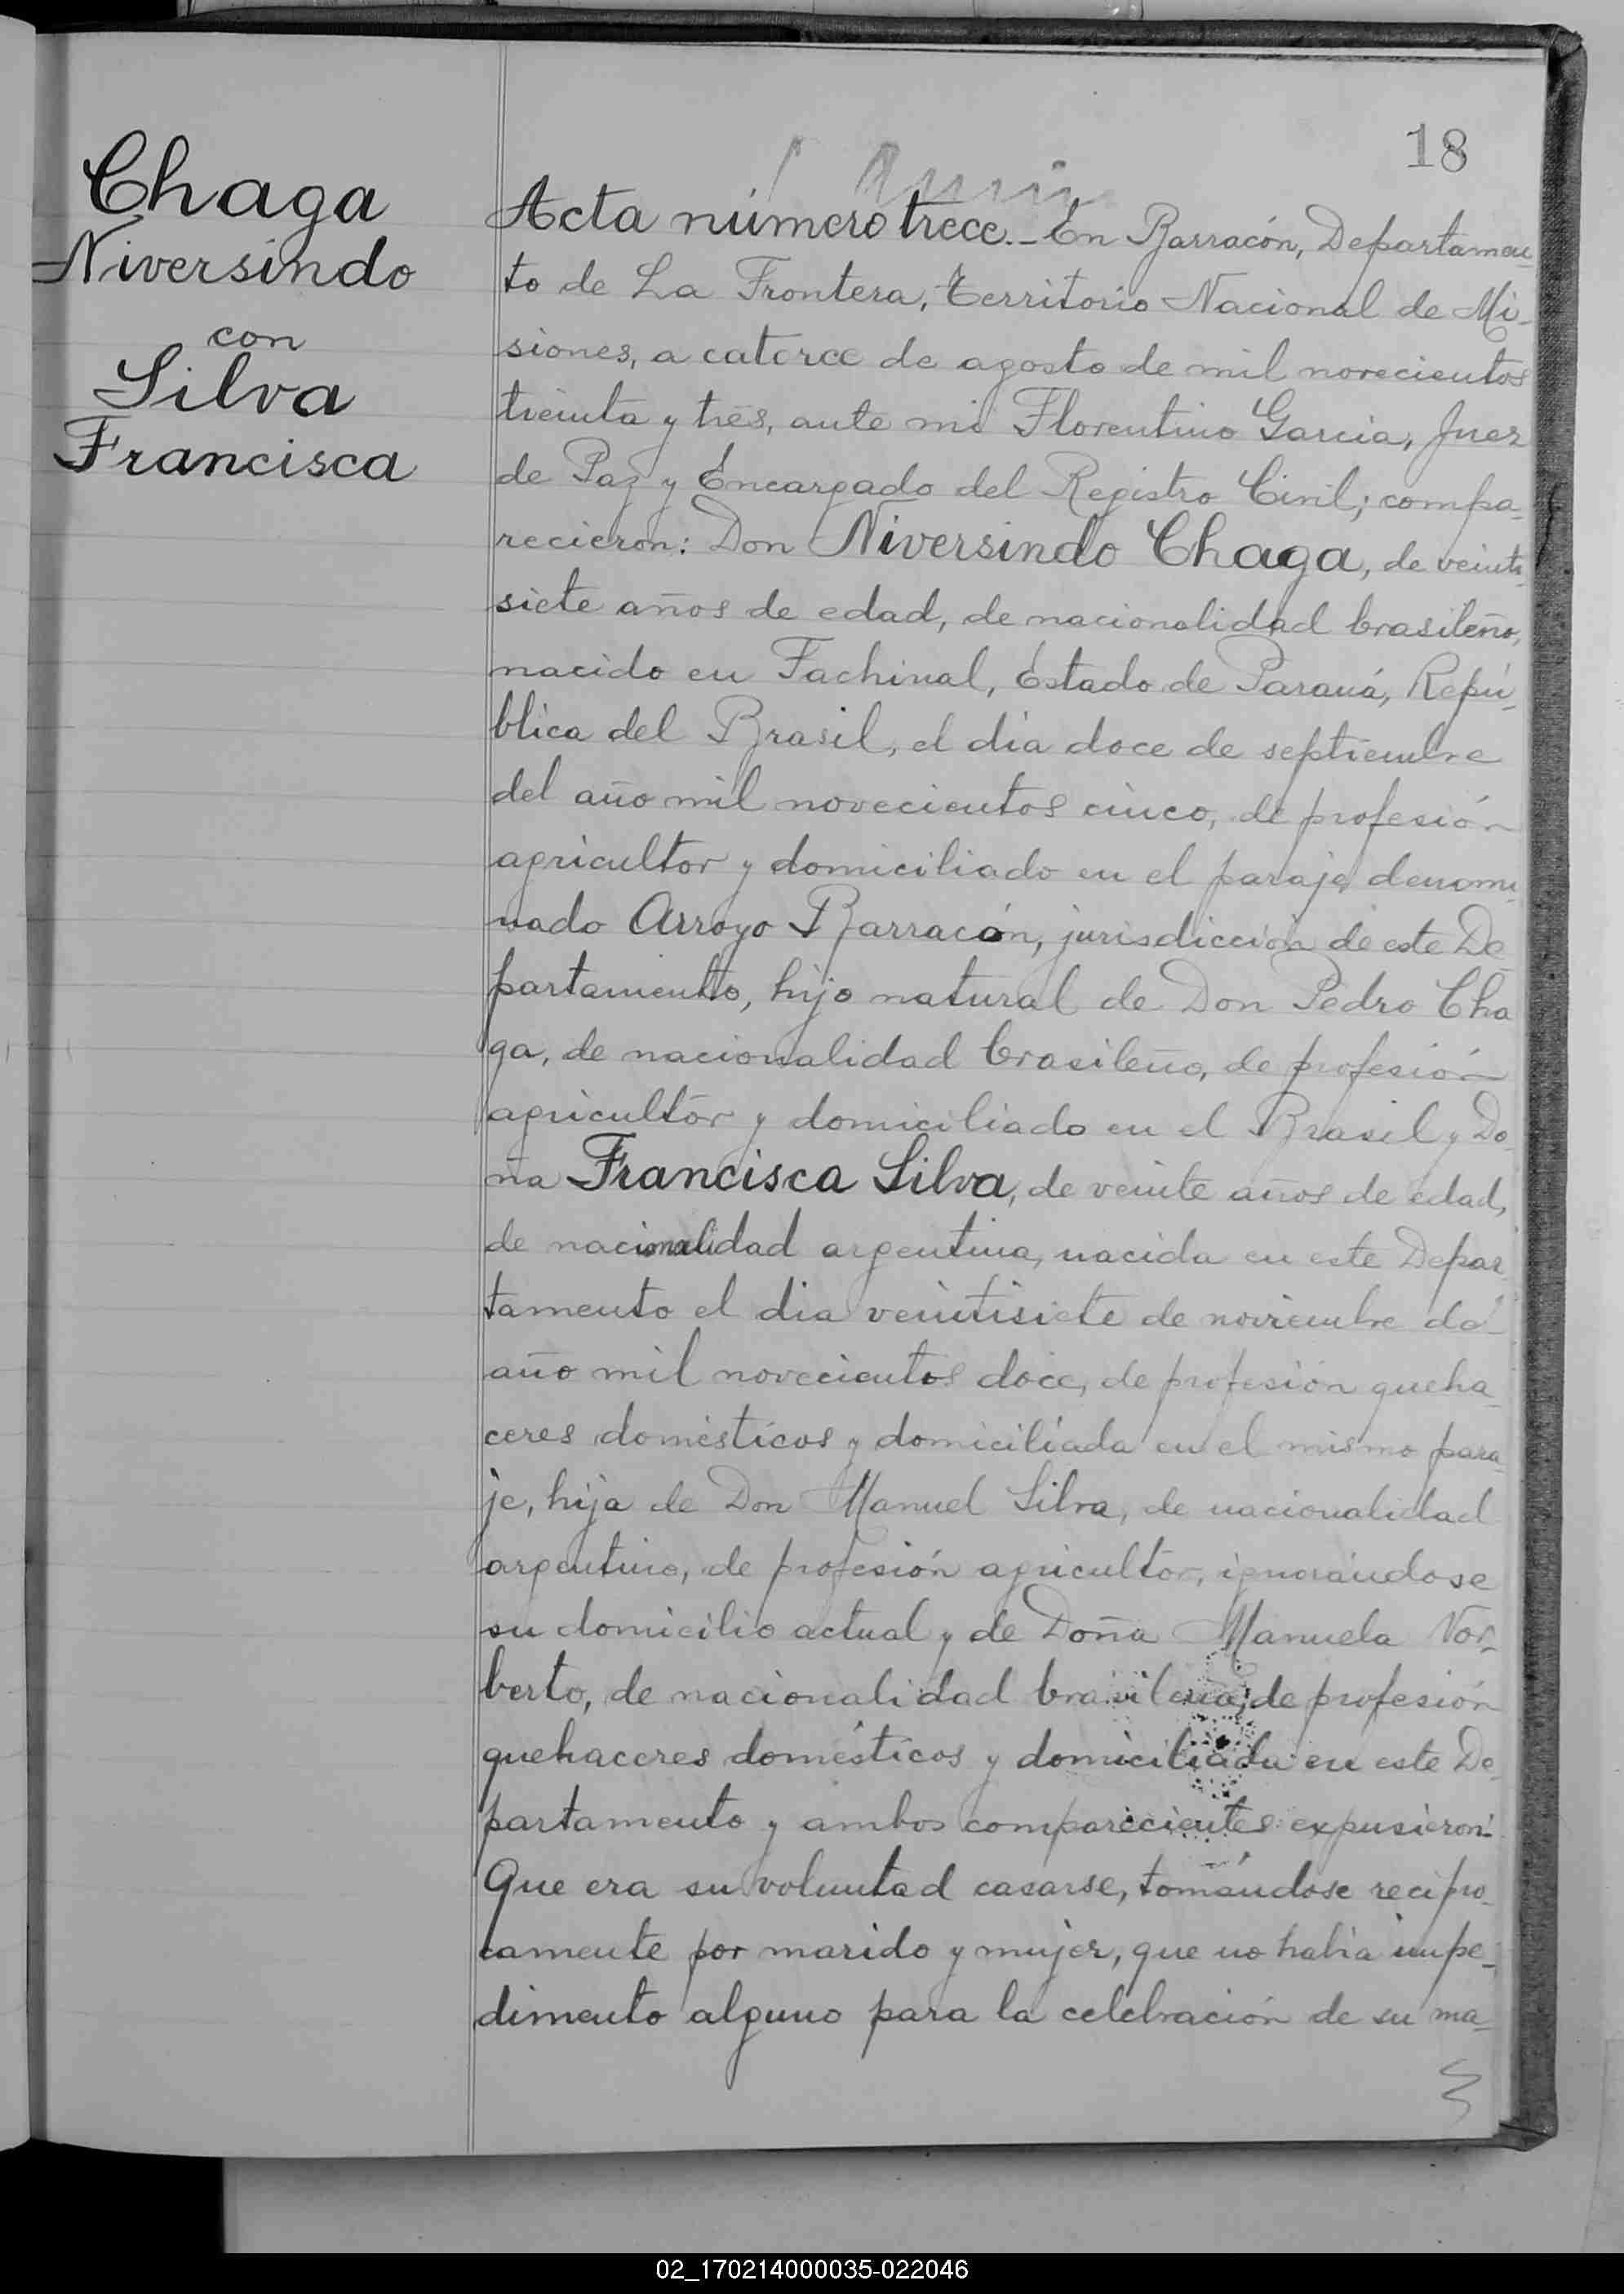 18
Chaga
Niversindo
con
Silva
Francisca
Acta número trece._ En Barracón, Departamen_
to de La Frontera, territorio Nacional de Mi_
siones, a catorce de agosto de mil novecientos
treinta y trés, ante mi Florentino Garcia, Juez
de Paz y Encargado del Registro Civil; compa_
recieron: Don Niversindo Chaga, de veinti_
siete años de edad, de nacionalidad brasileño,
nacido en Fachinal, Estado de Paraná, Repú_
blica del Brasil, el dia doce de septiembre
del año mil novecientos cinco, de profesión
agricultor y domiciliado en el paraje denomi_
nado Arroyo Barracón, jurisdicción de este De_
partamento, hijo natural de Don Pedro Cha
ga, de nacionalidad brasileño, de profesión
agricultór y domiciliado en el Brasil y Do_
ña Francisca Silva, de veinte años de edad,
de nacionalidad argentina, nacida en este Depar_
tamento el dia veintisiete de noviembre del
año mil novecientos doce, de profesión queha_
ceres domésticos y domiciliada en el mismo para_
je, hija de Don Manuel Silva, de nacionalidad
argentino, de profesión agricultor, ignorándose
su domicilio actual y de Doña Manuela Nor_
berto, de nacionalidad brasilena, de profesión
quehaceres domésticos y domiciliada en este De_
partamento y ambos comparecientes expusieron:
Que era su voluntad casarse, tomándose recipro_
camente por marido y mujer, que no habia impe_
dimento alguno para la celebración de su ma_
02_170214000035-022046